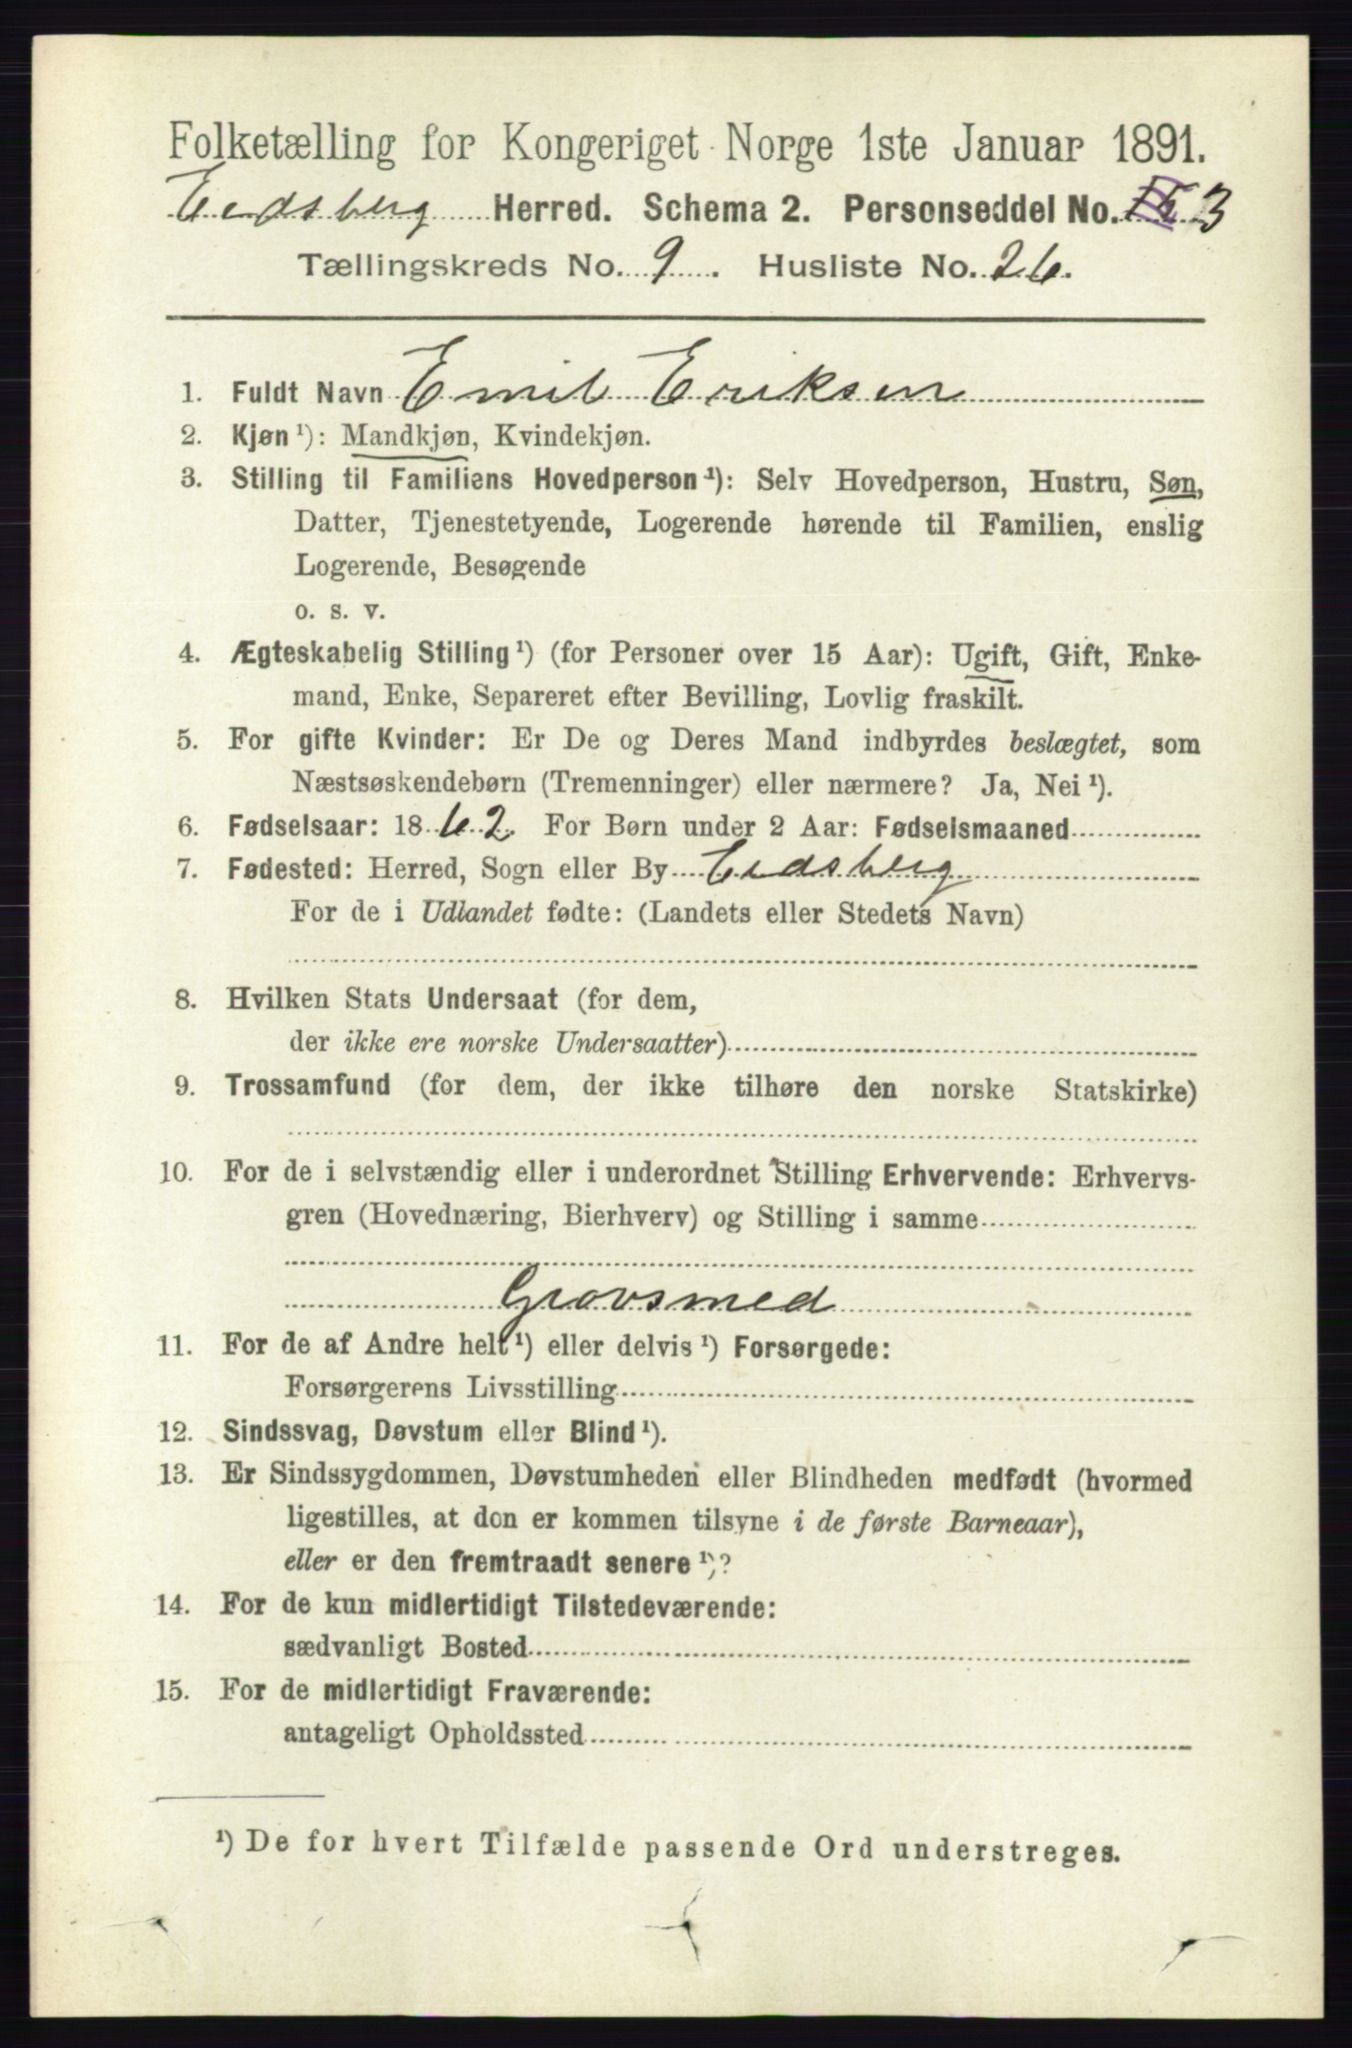 Folketælling for Kongeriget Norge 1ste Januar 1891.
Eidsberg Herred. Schema 2. Personseddel No. 3
Tællingskreds No. 9. Husliste No. 26.
1. Fuldt Navn Emil Eriksen
2. Kjøn ¹): Mandkjøn, Kvindekjøn.
3. Stilling til Familiens Hovedperson ¹): Selv Hovedperson, Hustru, Søn,
Datter, Tjenestetyende, Logerende hørende til Familien, enslig
Logerende, Besøgende
o. s. v.
4. Ægteskabelig Stilling ¹) (for Personer over 15 Aar): Ugift, Gift, Enke-
mand, Enke, Separeret efter Bevilling, Lovlig fraskilt.
5. For gifte Kvinder: Er De og Deres Mand indbyrdes beslægtet, som
Næstsøskendebørn (Tremenninger) eller nærmere? Ja, Nei ¹).
6. Fødselsaar: 1862. For Børn under 2 Aar: Fødselsmaaned
7. Fødested: Herred, Sogn eller By Eidsberg
For de i Udlandet fødte: (Landets eller Stedets Navn)
8. Hvilken Stats Undersaat (for dem,
der ikke ere norske Undersaatter)
9. Trossamfund (for dem, der ikke tilhøre den norske Statskirke)
10. For de i selvstændig eller i underordnet Stilling Erhvervende: Erhvervs-
gren (Hovednæring, Bierhverv) og Stilling i samme
Grovsmed
11. For de af Andre helt ¹) eller delvis ¹) Forsørgede:
Forsørgerens Livsstilling
12. Sindssvag, Døvstum eller Blind ¹).
13. Er Sindssygdommen, Døvstumheden eller Blindheden medfødt (hvormed
ligestilles, at den er kommen tilsyne i de første Barneaar),
eller er den fremtraadt senere ¹)?
14. For de kun midlertidigt Tilstedeværende:
sædvanligt Bosted
15. For de midlertidigt Fraværende:
antageligt Opholdssted
¹) De for hvert Tilfælde passende Ord understreges.